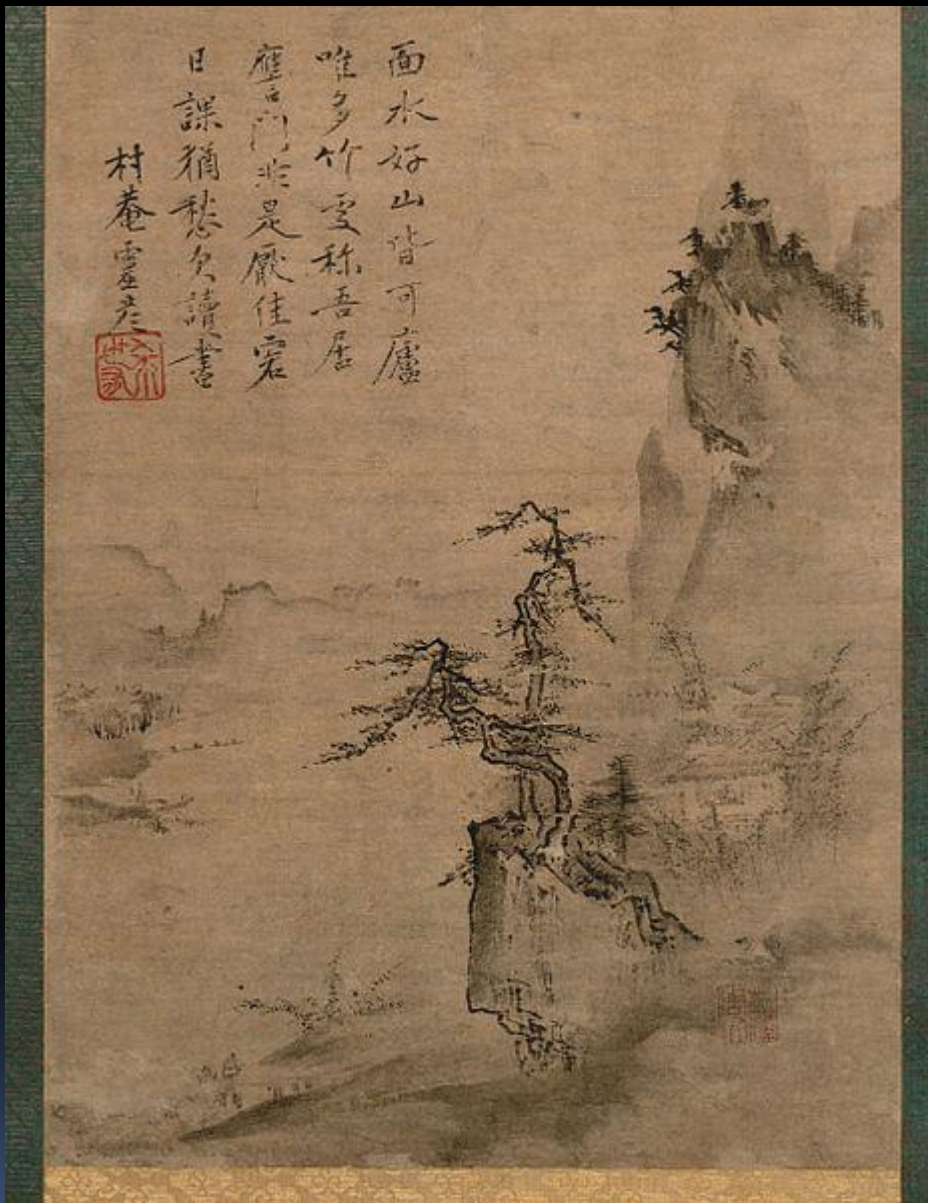 面水好山皆可廬
唯多竹處称吾居
譍門非是厭佳客
日課猶愁欠讀書
村菴靈彦